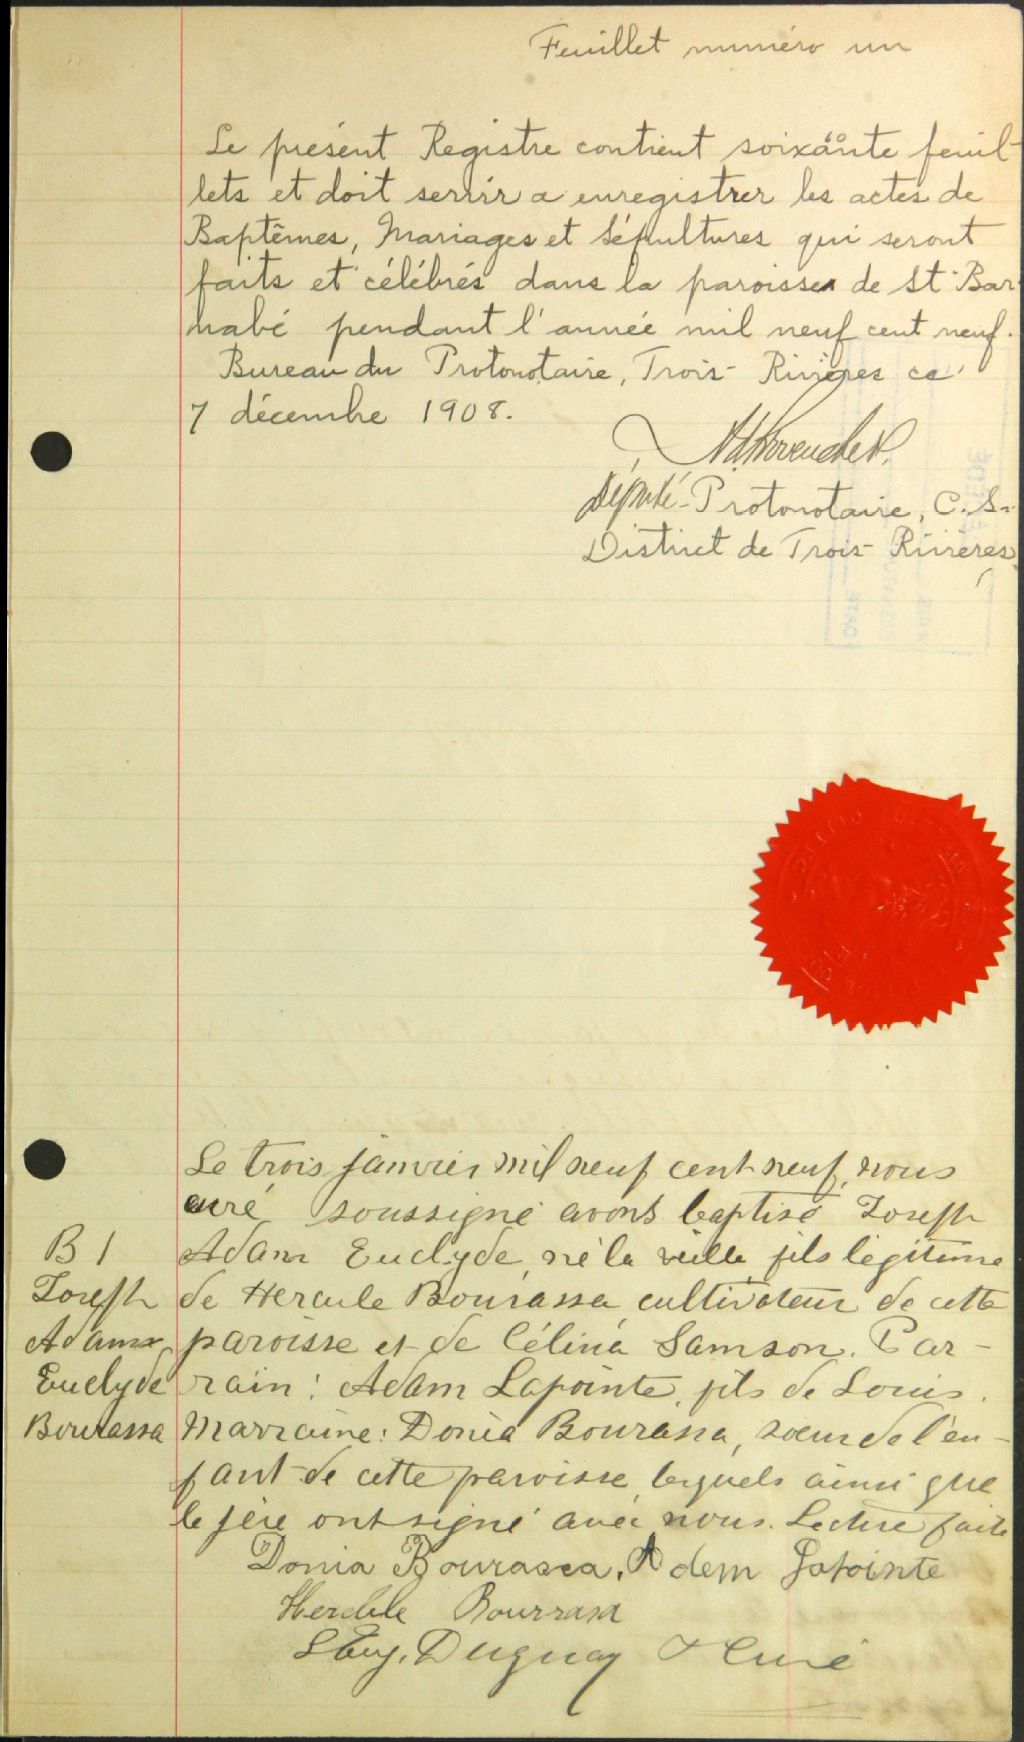 Feuillet numéro un
Le présent Registre contient soixante feuil-
lets et doit servir a enregistrer les actes de
Baptêmes, Mariages et Sépultures qui seront
faits et célébrés dans la paroisse de St Bar-
nabé pendant l'année mil neuf cent neuf.
Bureau du Protonotaire, Trois-Rivières ce
7 décembre 1908.
Député-Protonotaire, C.S.
District de Trois-Rivières
Le trois janvier mil neuf cent neuf, nous
curé soussigné avons baptisé Joseph
B 1
Adam Euclyde, né la veille fils légitime
Joseph
de Hercule Bourassa cultivateur de cette
Adam
paroisse et de Célina Samson. Par-
Euclyde
rain: Adam Lapointe, fils de Louis.
Bourassa
Marraine: Donia Bourassa, soeur de l'en-
fant de cette paroisse, lesquels ainsi que
le père ont signé avec nous. Lecture faite
Donia Bourassa. Adem Lapointe
Hercule Bourrasa
Eug. Duguay Ptre Curé